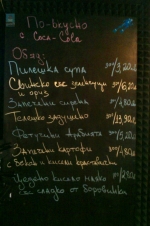 По-вкусно
с Coca-Cola
Обяд:
Пилешка супа 3,20лв
Свинско със зеленчуци 6,20лв
ориз
Запечени сирена 4,80лв
Телешко задушено 13,90лв
Фетучини Арабиата
Запечени картофи 4,90лв
с бекон и кисели краставички
Цедено кисело мляко
със сладко от боровинки